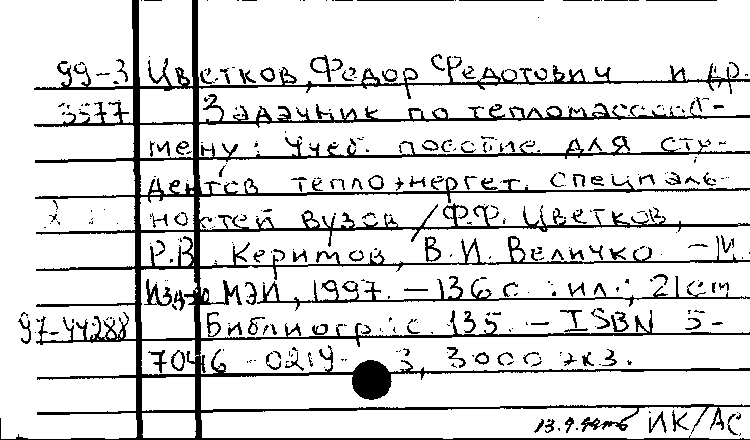 99-3 Цветков, Федор Федотович и др.
3577 Задачник по тепломассооб-
мену: Учеб. пособие для сту-
дентов теплоэнергет. специаль-
ностей вузов / Ф.Ф. Цветков,
Р.В. Керимов, В.И. Величко. - М.:
Изд-во МЭИ, 1997. - 136 с.: ил.; 21 cm
97-44288 Библиогр.: с. 135. - ISBN 5-
7046-0219-3, 3000 экз.
ИК/АС